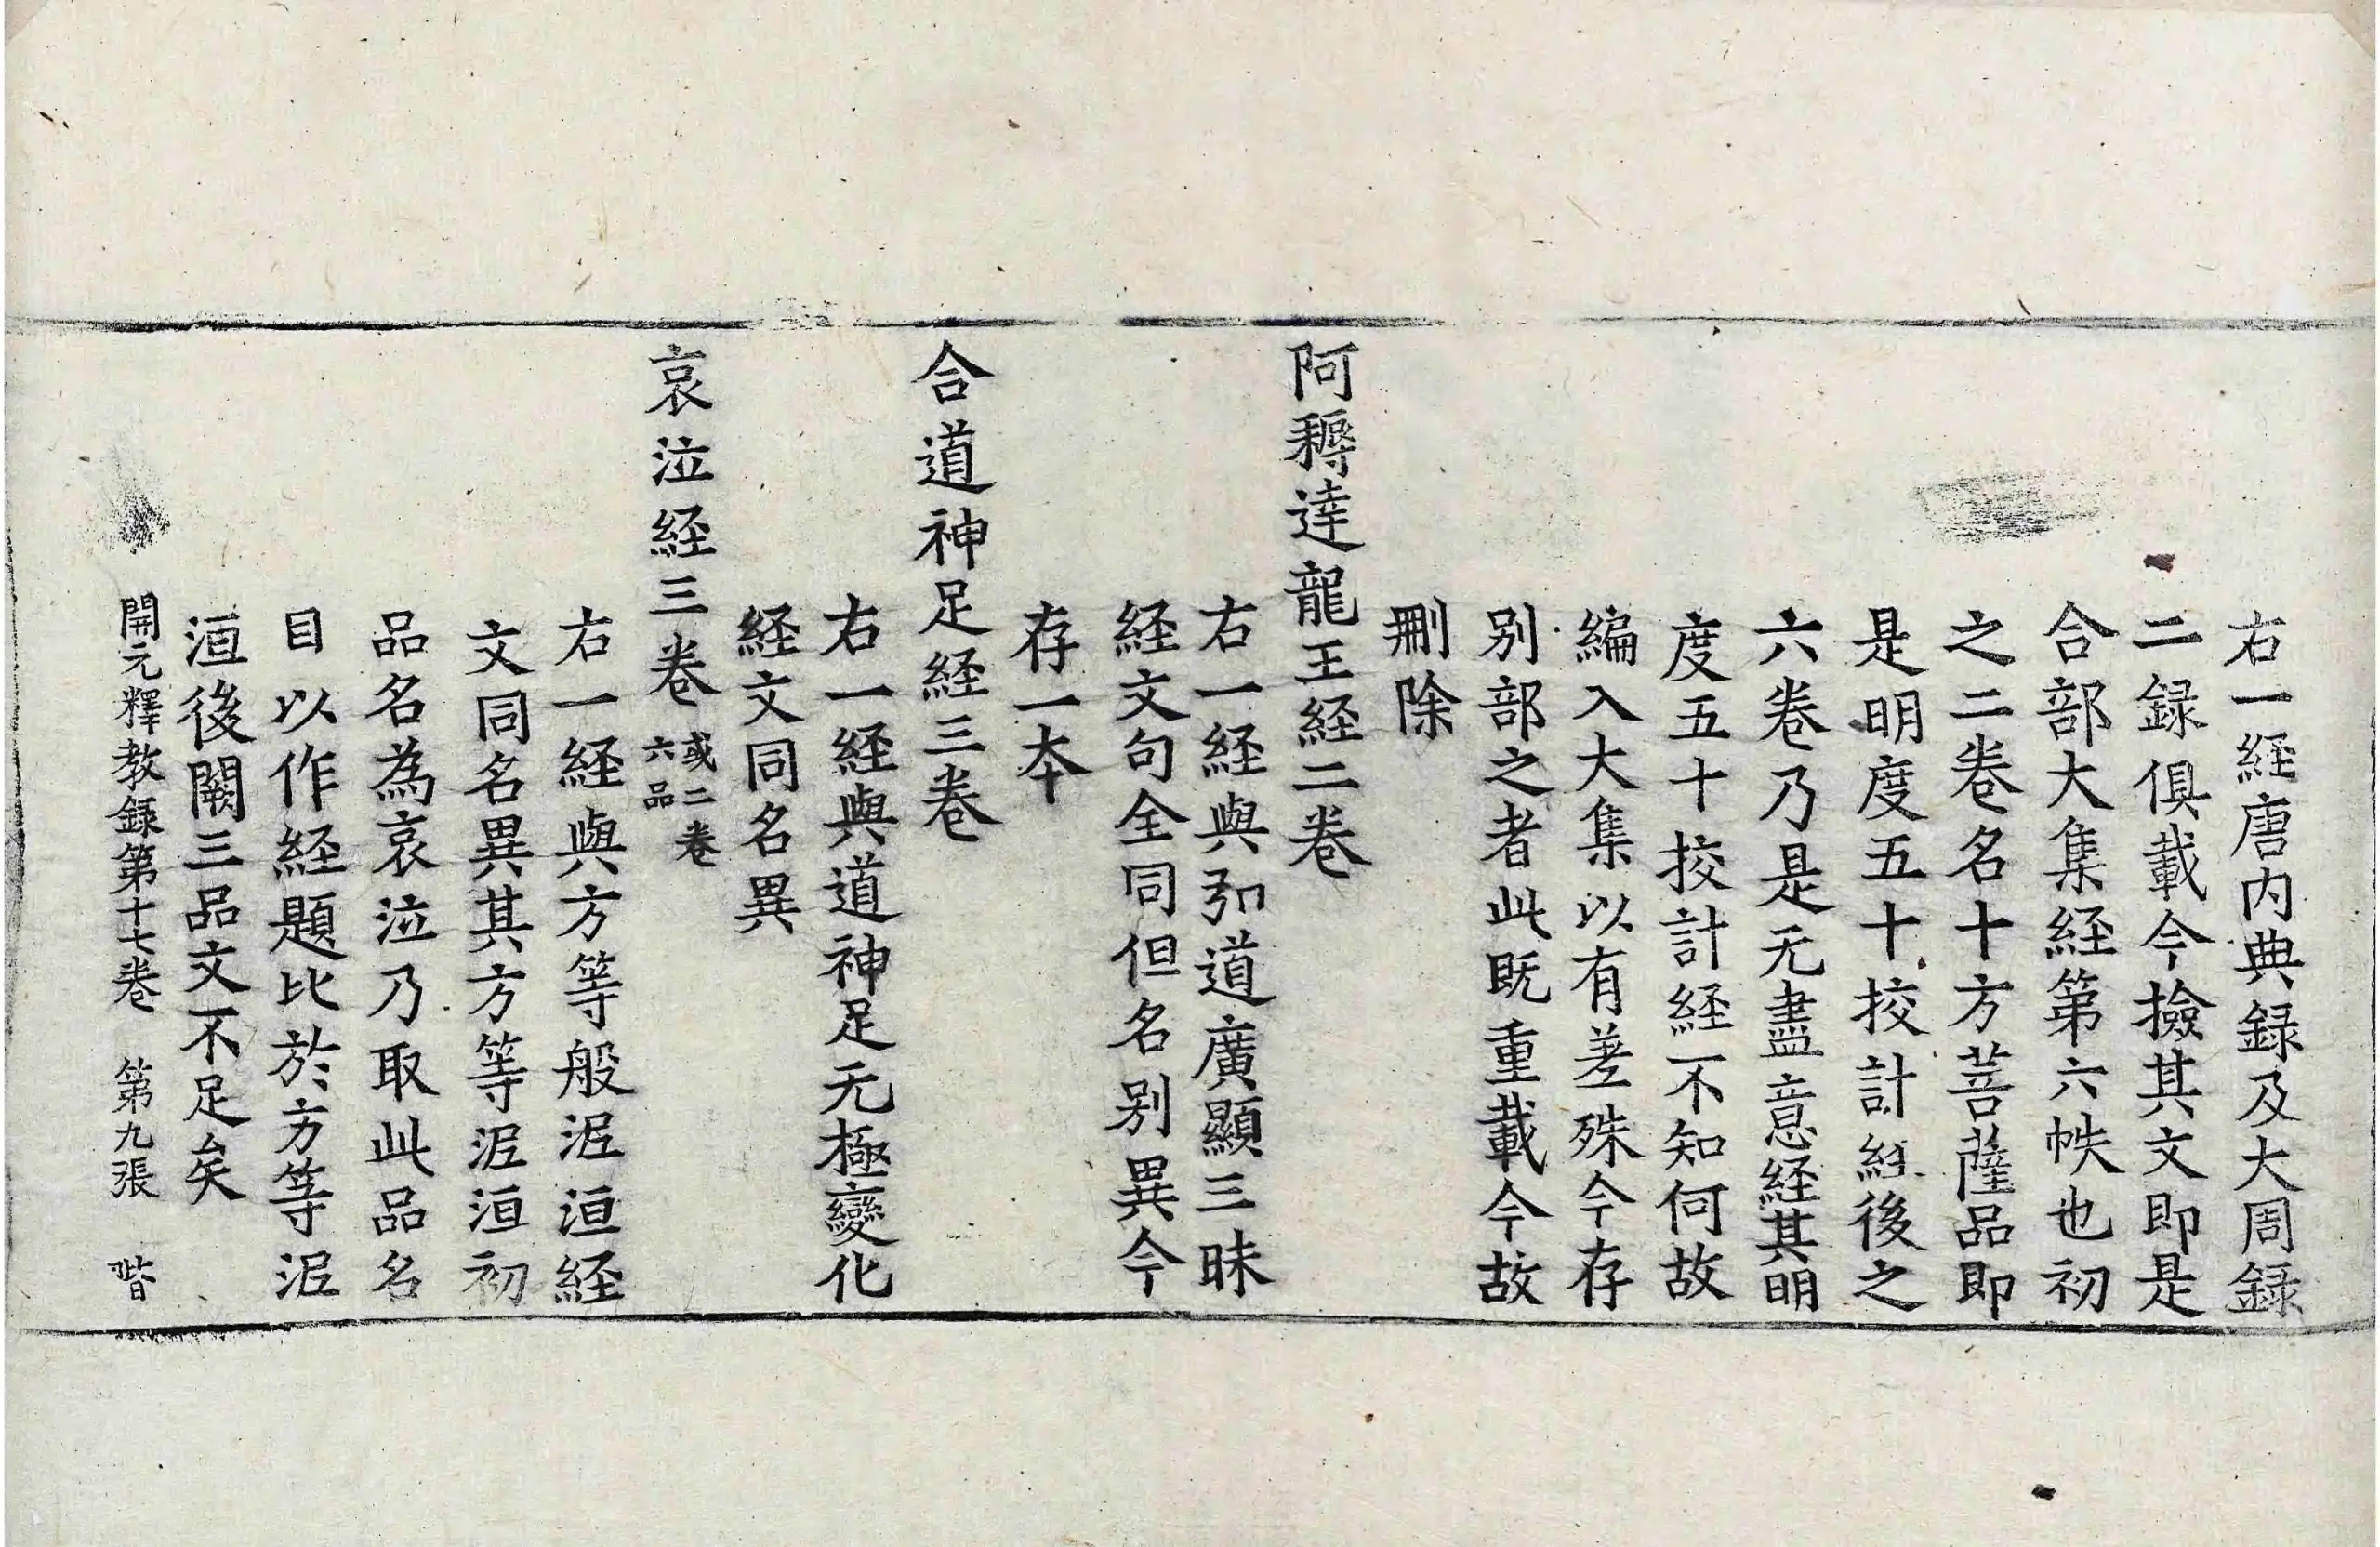 右一経唐内典録及大周録
二録俱載今撿其文即是
合部大集経第六帙也初
之二卷名十方菩薩品即
是明度五十挍計経後之
六卷乃是无盡意経其明
度五十挍計経不知何故
編入大集以有差殊今存
别部之者此既重載今故
刪除
阿耨達龍王経二卷
右一経與弘道廣顯三昧
経文句全同但名别異今
存一本
合道神足経三卷
右一経與道神足无極變化
経文同名異
哀泣経三卷 或二卷
六品
右一経與方等般泥洹経
文同名異其方等泥洹初
品名為哀泣乃取此品名
目以作経題比於方等泥
洹後闕三品文不足矣
開元釋教録第十七卷 第九張 階